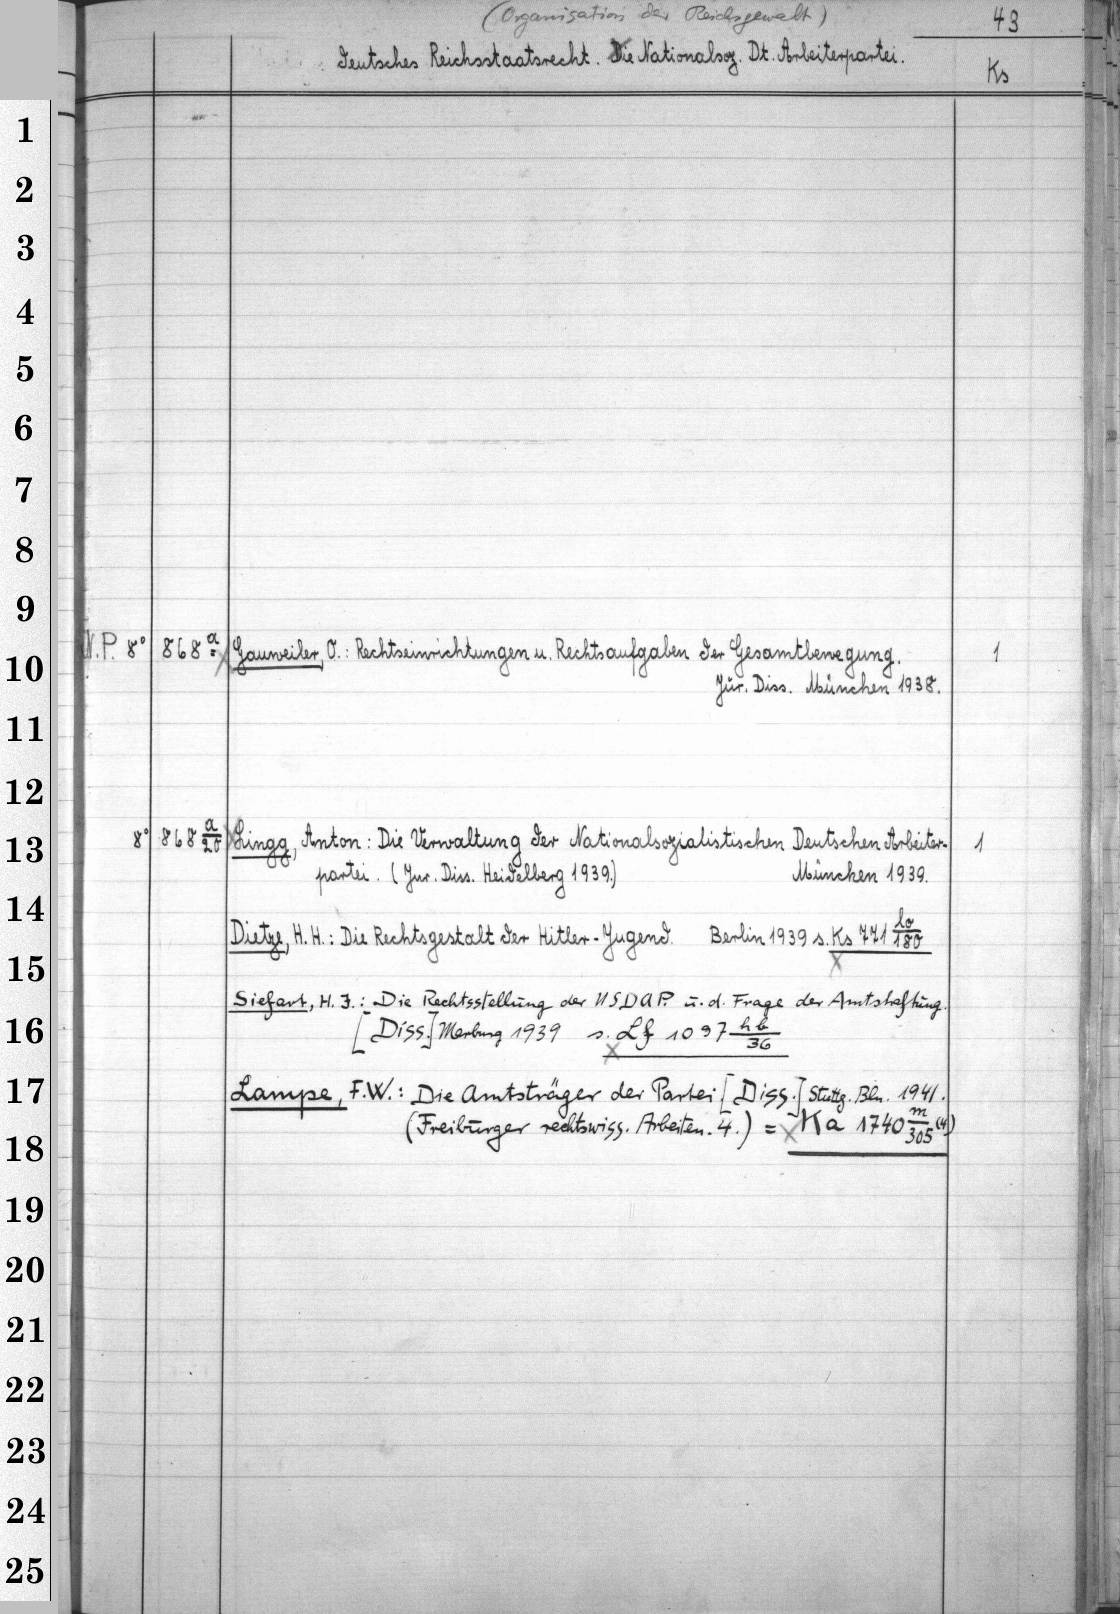 (Organisation der Reichsgewalt)
43
Deutsches Reichsstaatsrecht. Die Nationalsoz. Dt. Arbeiterpartei.
Ks
1
2
3
4
5
6
7
8
9
N.P. 8° 868 a Gauweiler, O.: Rechtseinrichtungen u. Rechtsaufgaben der Gesamtbewegung. 1
10
Jur. Diss. München 1938.
11
12
8° 868 a/20 Lingg, Anton: Die Verwaltung der Nationalsozialistischen Deutschen Arbeiter- 1
13
partei. (Jur. Diss. Heidelberg 1939.) München 1939.
14
Dietze, H. H.: Die Rechtsgestalt der Hitler-Jugend. Berlin 1939 s. Ks 771 lo/180
15
Siefart, H. J.: Die Rechtsstellung der NSDAP. u. d. Frage der Amtshaftung.
16
[Diss.] Marburg 1939 s. Lf 1097 hb/36
17
Lampe, F.W.: Die Amtsträger der Partei [Diss.] Stuttg. Bln. 1941.
(Freiburger rechtswiss. Arbeiten. 4.) = Ka 1740 m/305 (4)
18
19
20
21
22
23
24
25